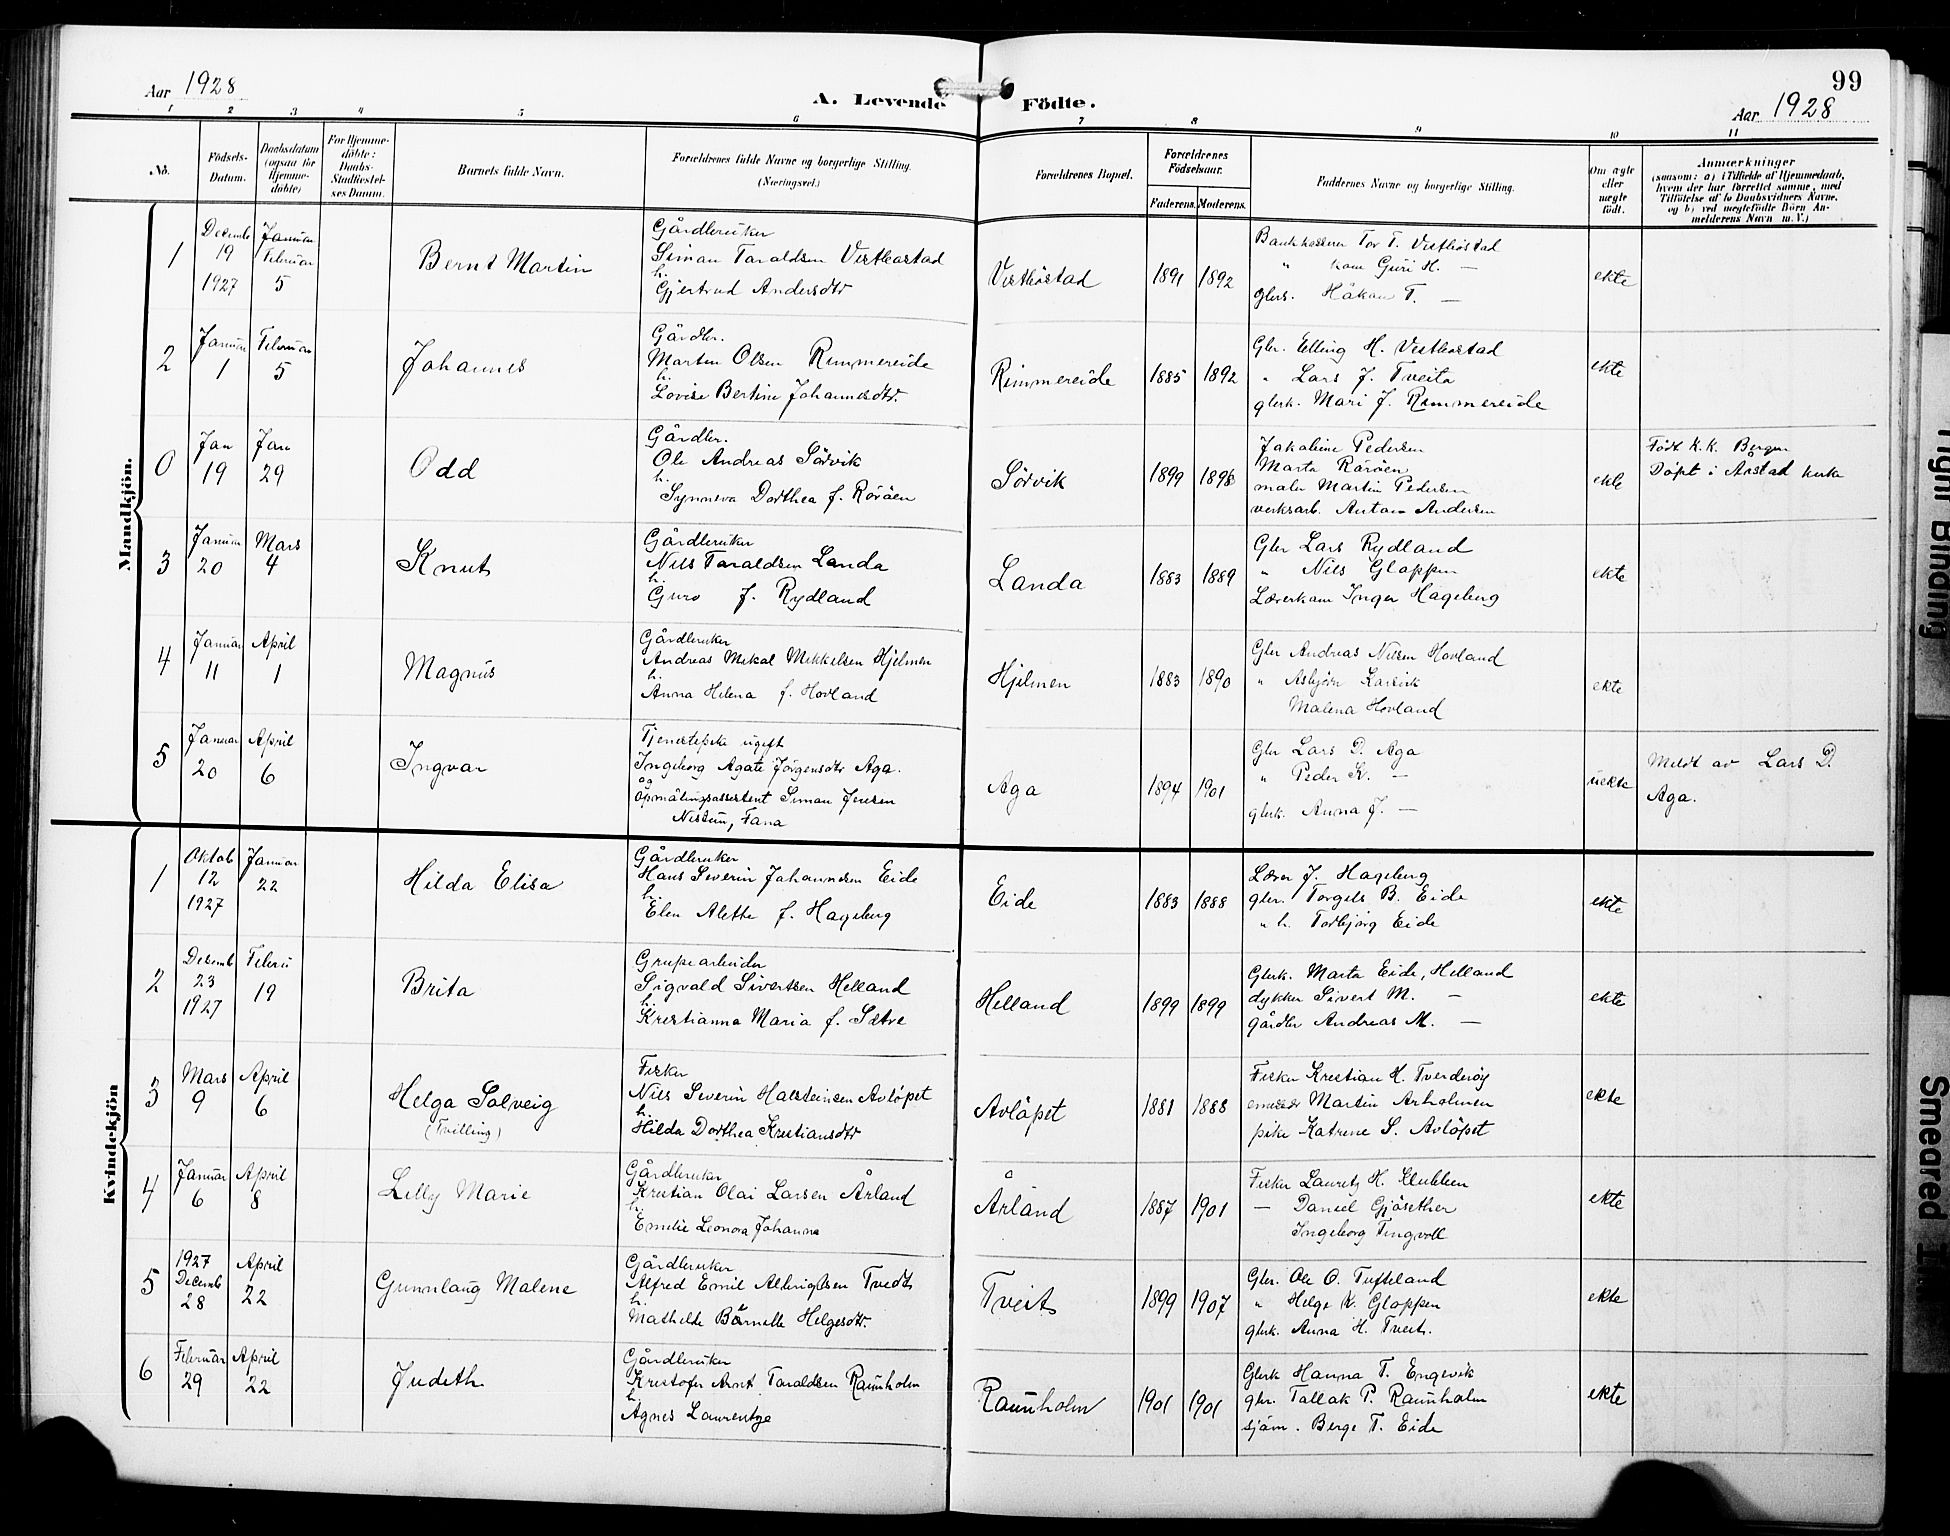 Aar 1928
A. Levende Födte.
99
Aar 1928
1 2 3 4 5 6 7 8 9 10 11
No.
Födsels-Datum.
Daabsdatum (ogsaa for Hjemme-döbte)
For Hjemme-döbte: Daabs-Stadfæstel-ses Datum.
Barnets fulde Navn.
Forældrenes fulde Navne og borgerlige Stilling. (Næringsvei.)
Forældrenes Bopæl.
Forældrenes Födselsaar.
Faderens. Moderens.
Faddernes Navne og borgerlige Stilling.
Om ægte eller uægte födt.
Anmærkninger
(saasom: a) i Tilfælde af Hjemmedaab,
hvem der har forrettet samme, med
Tilföielse af to Daabsvidners Navne,
og b) ved uægtefödte Börn An-
melderens Navn m. V.)
Mandkjön.
1
Decemb 19 1927
Januar Februar 5
Bernt Martin
Gårdbruker
Simon Taraldsen Vestbøstad
h.
Gjertrud Andersdtr
Vestbøstad
1891 1892
Tor T. Vestbøstad
" kone Guri H. —
Håkon T. —
ekte
2
Januar 1
Februar 5
Johannes
Gårdbr.
Martin Olsen Rimmereide
h.
Lovise Bertine Johannesdtr.
Rimmereide
1885 1892
Gbr. Elling H. Vestbostad
" Lars J. Tveita
gbrk. Mari J. Rimmereide
ekte
0
Jan 19
Jan 29
Odd
Gårdbr.
Ole Andreas Sörvik
h.
Synneva Dorthea f. Röröen
Sörvik
1899 1898
Jakobine Pedersen
Marta Röröen
maler Martin Pedersen
verksarb. Anton Andersen
ekte
Födt K.K. Bergen
Döpt i Årstad kirke
3
Januar 20
Mars 4
Knut
Gårdbruker
Nils Taraldsen Landa
h.
Guro f. Rydland
Landa
1883 1889
Gbr Lars Rydland
" Nils Gloppen
Lærerkone Inger Hageberg
ekte
4
Januar 11
April 1
Magnus
Gårdbruker
Andreas Mikal Mikkelsen Hjelmen
h.
Anna Helena f. Hovland
Hjelmen
1883 1890
Gbr Andreas Nilsen Hovland
" Asbjörn
Malena Hovland
ekte
5
Januar 20
April 6
Ingvar
Tjenestepike ugift
Ingeborg Agate Jörgensdtr Aga.
og
Opmålingsassistent Simon Jensen
Nestun, Fana
Aga
1894 1901
Gbr Lars D. Aga
" Peder K. —
gbrk. Anna J. —
uekte
Meldt av Lars D.
Aga.
Kvindekjön
1
Oktob 12 1927
Januar 22
Hilda Elisa
Gårdbruker
Hans Severin Johannesen Eide
h.
Elen Alette f. Hageberg
Eide
1883 1888
Lærer J. Hageberg
gbr. Torgils B. Eide
" h. Torbjörg Eide
ekte
2
Decemb 23 1927
Febru 19
Brita
Grubearbeider
Sigvald Sivertsen Helland
h.
Kristianna Maria f. Sætre
Helland
1899 1899
Gbrk. Marta Eide, Helland
dykker Sivert M. —
gårdbr Andreas M. —
ekte
3
Mars 9
April 6
Helga Solveig
(Tvilling)
Fisker
Nils Severin Halsteinsen Avlöpet
h.
Hilda Dorthea Kristiansdtr
Avlöpet
1881 1888
Fisker Kristian H. Tverderöy
Martin Arholmen
pike Katrine S. Avlöpet
ekte
4
Januar 6
April 8
Lilly Marie
Gårdbruker
Kristian Olai Larsen Årland
h.
Emilie Leonora Johanna
Årland
1887 1901
Fisker Lauretz H. Klubben
— Daniel Gjösether
Ingeborg Tingvoll
ekte
5
1927 Decemb 28
April 22
Gunnlaug Malene
Gårdbruker
Alfred Emil Albrigtsen Tvedt
h.
Mathilde Helgesdtr.
Tveit
1899 1907
Gbr. Ole O. Tufteland
" Helge K. Gloppen
gbrk. Anna H. Tveit.
ekte
6
Februar 29
April 22
Judeth
Gårdbruker
Kristofer Arnt Taraldsen Raunholm
h.
Agnes Laurentze
Raunholm
1901 1901
Gbrk Hanna T. Engevik
gbr. Tallak P. Raunholm
sjöm. Berge T. Eide
ekte
Tight Binding
Smeared